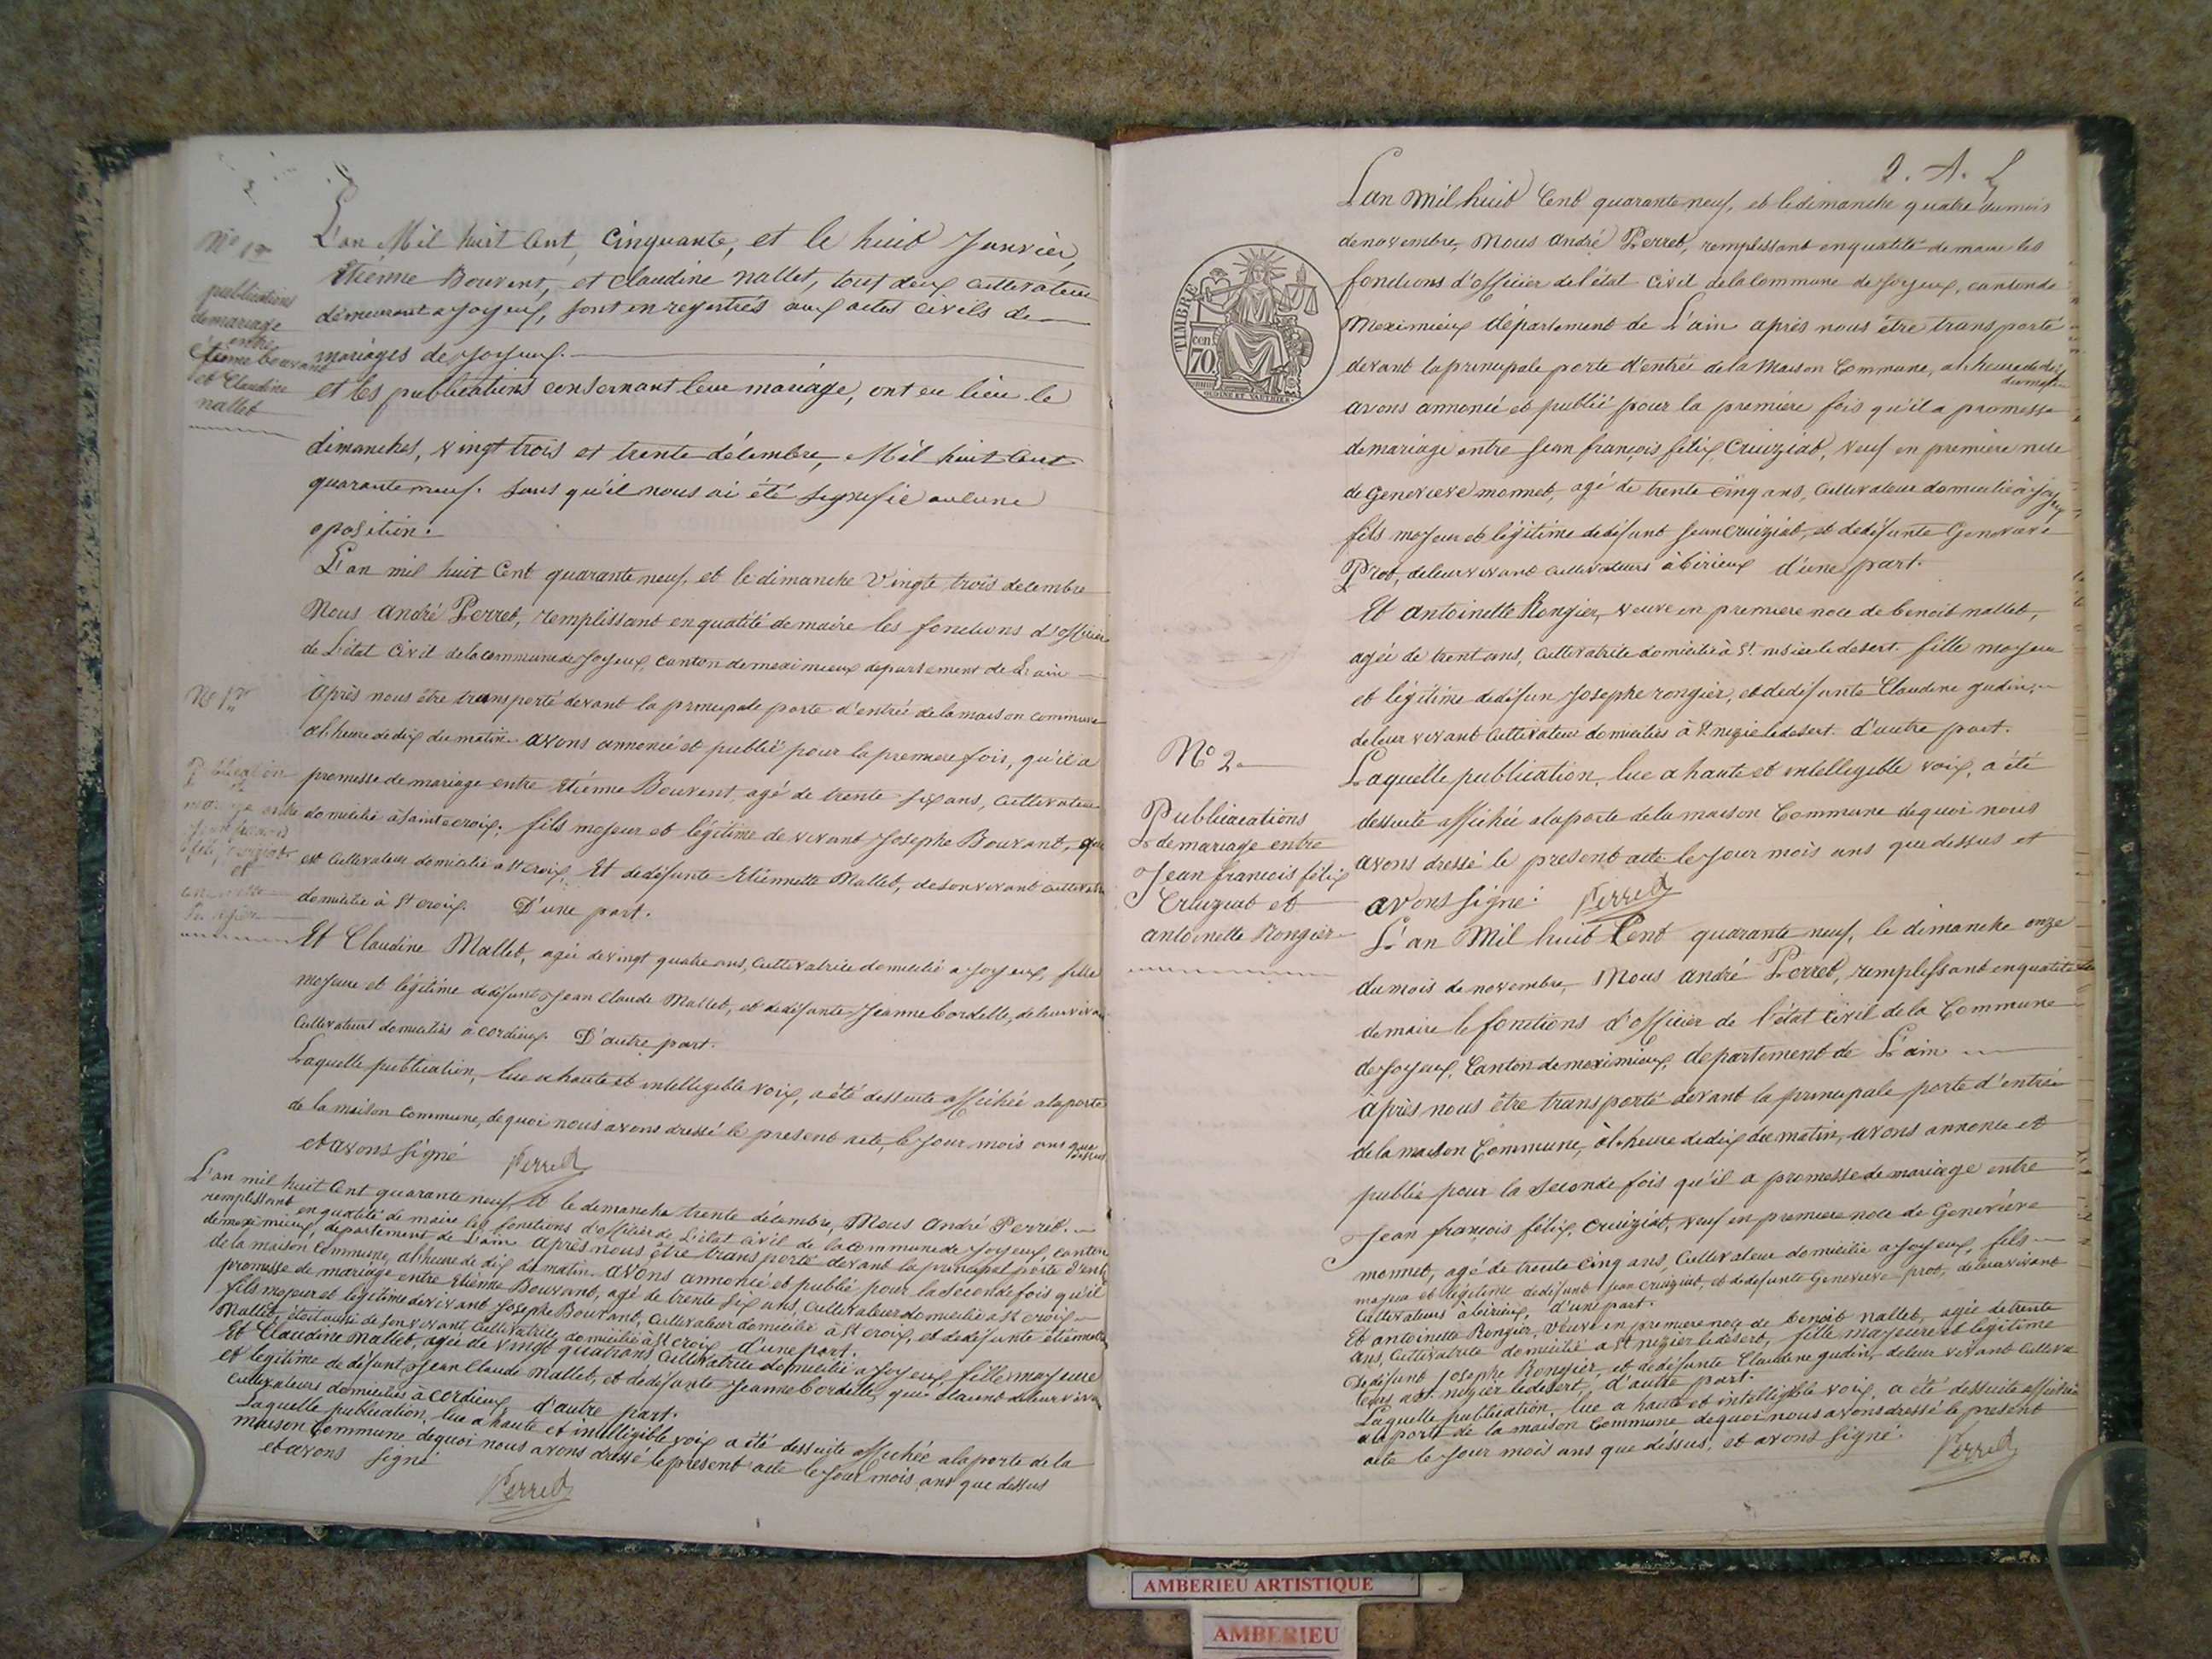 No 1er
publications
de mariage
entre
étienne bouvant
et Claudine
nallet
L'an Mil huit Cent, Cinquante, et le huit Janvier,
Etiénne Bouvent, et Claudine nallet, tous deux cultivateurs
démeurant a Joyeux, sont enregistrés aux actes civils de
mariages de Joyeux.
et les publications consernant leur mariage, ont eu lieu le
dimanches, vingt trois et trente décembre, Mil huit Cent
quarante neuf. sans qu'il nous ai été signifié aucune
oposition.
L'an mil huit Cent quarante neuf, et le dimanche vingte trois decembre
Nous andré Perret, remplissant en qualité de maire les fonctions d'officier
de L'état Civil de la commune de Joyeux, canton de meximieux departement de L'ain
No 1er
Après nous être transporté devant la principale porte d'entrée de la maison commune
a l'heure de dix du matin. avons annoncé et publié pour la premiere fois, qu'il a
Publication
de
mariage entre
jean francois
félix cruiziat
et
antoinette
Rongier
promesse de mariage entre Etiénne Bouvent, agé de trente six ans, cultivateur
domicilié à Sainte croix, fils majeur et légitime de vivant Josephe Bouvant, qui
est cultivateur domicilié a St croix, Et de défunte Etiénnette Mallet, de son vivant cultivatrice
domicilié à St croix. D'une part.
Et Claudine Mallet, agée de vingt quatre ans, cultivatrice domicilié a Joyeux, fille
majeure et légitime de défunt Jean Claude Mallet, et de défunte Jeanne Cordelle, de leur vivant
Cultivateurs domiciliés à cordieux. D'autre part.
Laquelle publication, lue a haute et intelligible voix, a été dessuite affichée a la porte
de la maison Commune, de quoi nous avons dressé le present acte, le Jour mois ans que dessus
et avons signé Perret
L'an mil huit Cent quarante neuf, et le dimanche trente décembre, Nous André Perret.
remplissant en qualité de maire les fonctions d'officier de L'état Civil de la commune de Joyeux, canton
de meximieux, departement de L'ain. Après nous être transporté devant la principal porte d'entrée
de la maison Commune, a l'heure de dix du matin. avons annoncé et publié pour la seconde fois qu'il
promesse de mariage entre Etiénne Bouvant, agé de trente six ans, cultivateur domicilié a St croix
fils majeur et legitime de vivant Josephe Bouvant, cultivateur domicilié à St croix, et de défunte étiénnette
Mallet, étoit aussi de son vivant Cultivatrice domicilié à St croix d'une part.
Et Claudine Mallet, agée de vingt quatre ans Cultivatrice domicilié a Joyeux fille majeure
et legitime de défunt Jean Claude Mallet, et de défunte Jeanne Cordelle, qui étaient de leur vivant
Cultivateurs domiciliés à Cordieux, d'autre part.
Laquelle publication, lue a haute et intelligible voix a été dessuite affichée a la porte de la
maison Commune de quoi nous avons dressé le present acte le Jour mois ans que dessus
et avons signé
Perret
L'an mil huit Cent quarante neuf, et le dimanche quatre du mois
de novembre, Nous andré Perret, remplissant en qualité de maire les
fonctions d'officier de l'état Civil de la Commune de Joyeux, canton de
Meximieux département de L'ain après nous être transporté
devant la principale porte d'entrée de la Maison Commune, a l'heure de dix
du matin
avons annoncé et publié pour la première fois qu'il a promesse
de mariage entre Jean françois félix Cruiziat, veuf en première noce
de Genevieve monnet, agé de trente cinq ans, Cultivateur domicilié à Joyeux
fils majeur et légitime de défunt Jean Cruiziat, et de défunte Geneviève
Prot, de leur vivant Cultivateurs à birieux d'une part.
Et antoinette Rongier, veuve en premiere noce de benoit nallet,
agée de trent ans, Cultivatrice domicilié à St nizier le desert fille majeure
et légitime de défun Josephe rongier, et de défunte Claudine gudin,
de leur vivant Cultivateur domiciliés à St nizie le desert. d'autre part.
Laquelle publication, lue a haute et intelligible voix, a été
dessuite affichée a la porte de la maison Commune de quoi nous
avons dressé le present acte le Jour mois ans que dessus et
avons signé. Perret
No 2
Publicacations
de mariage entre
Jean francois félix
Cruiziat et
antoinette Rongier
L'an Mil huit Cent quarante neuf, le dimanche onze
du mois de novembre, Nous andré Perret, remplissant en qualité
de maire le fonctions d'officier de l'état Civil de la Commune
de Joyeux, Canton de meximieux, departement de L'ain
Après nous être transporté devant la principale porte d'entrée
de la maison Commune, à l'heure de dix du matin, avons annoncé et
publié pour la seconde fois qu'il a promesse de mariage entre
Jean françois félix, Cruiziat, veuf en premiere noce de Geneviève
monnet, agé de trente cinq ans, Cultivateur domicilié a Joyeux, fils
majeur et légitime de défunt Jean Cruiziat, et de défunte Genevieve prot, de leur vivant
Cultivateurs à birieux, d'une part.
Et antoinette Rongier, veuve en premiere noce de benoit nallet, agée de trente
ans, Cultivatrice domicilié a St nizier le desert, fille majeure et legitime
de défunt Josephe Rongier, et de défunte Claudine gudin, de leur vivant Cultiva
teurs a St nizier le desert, d'autre part.
Laquelle publication, lue a haute et intelligible voix, a été dessuite affichée
a la porte de la maison Commune de quoi nous avons dressé le present
acte le Jour mois ans que déssus, et avons signé. Perret
TIMBRE
70 cen
OUDINE ET VAUTHIER
AMBERIEU ARTISTIQUE
AMBERIEU